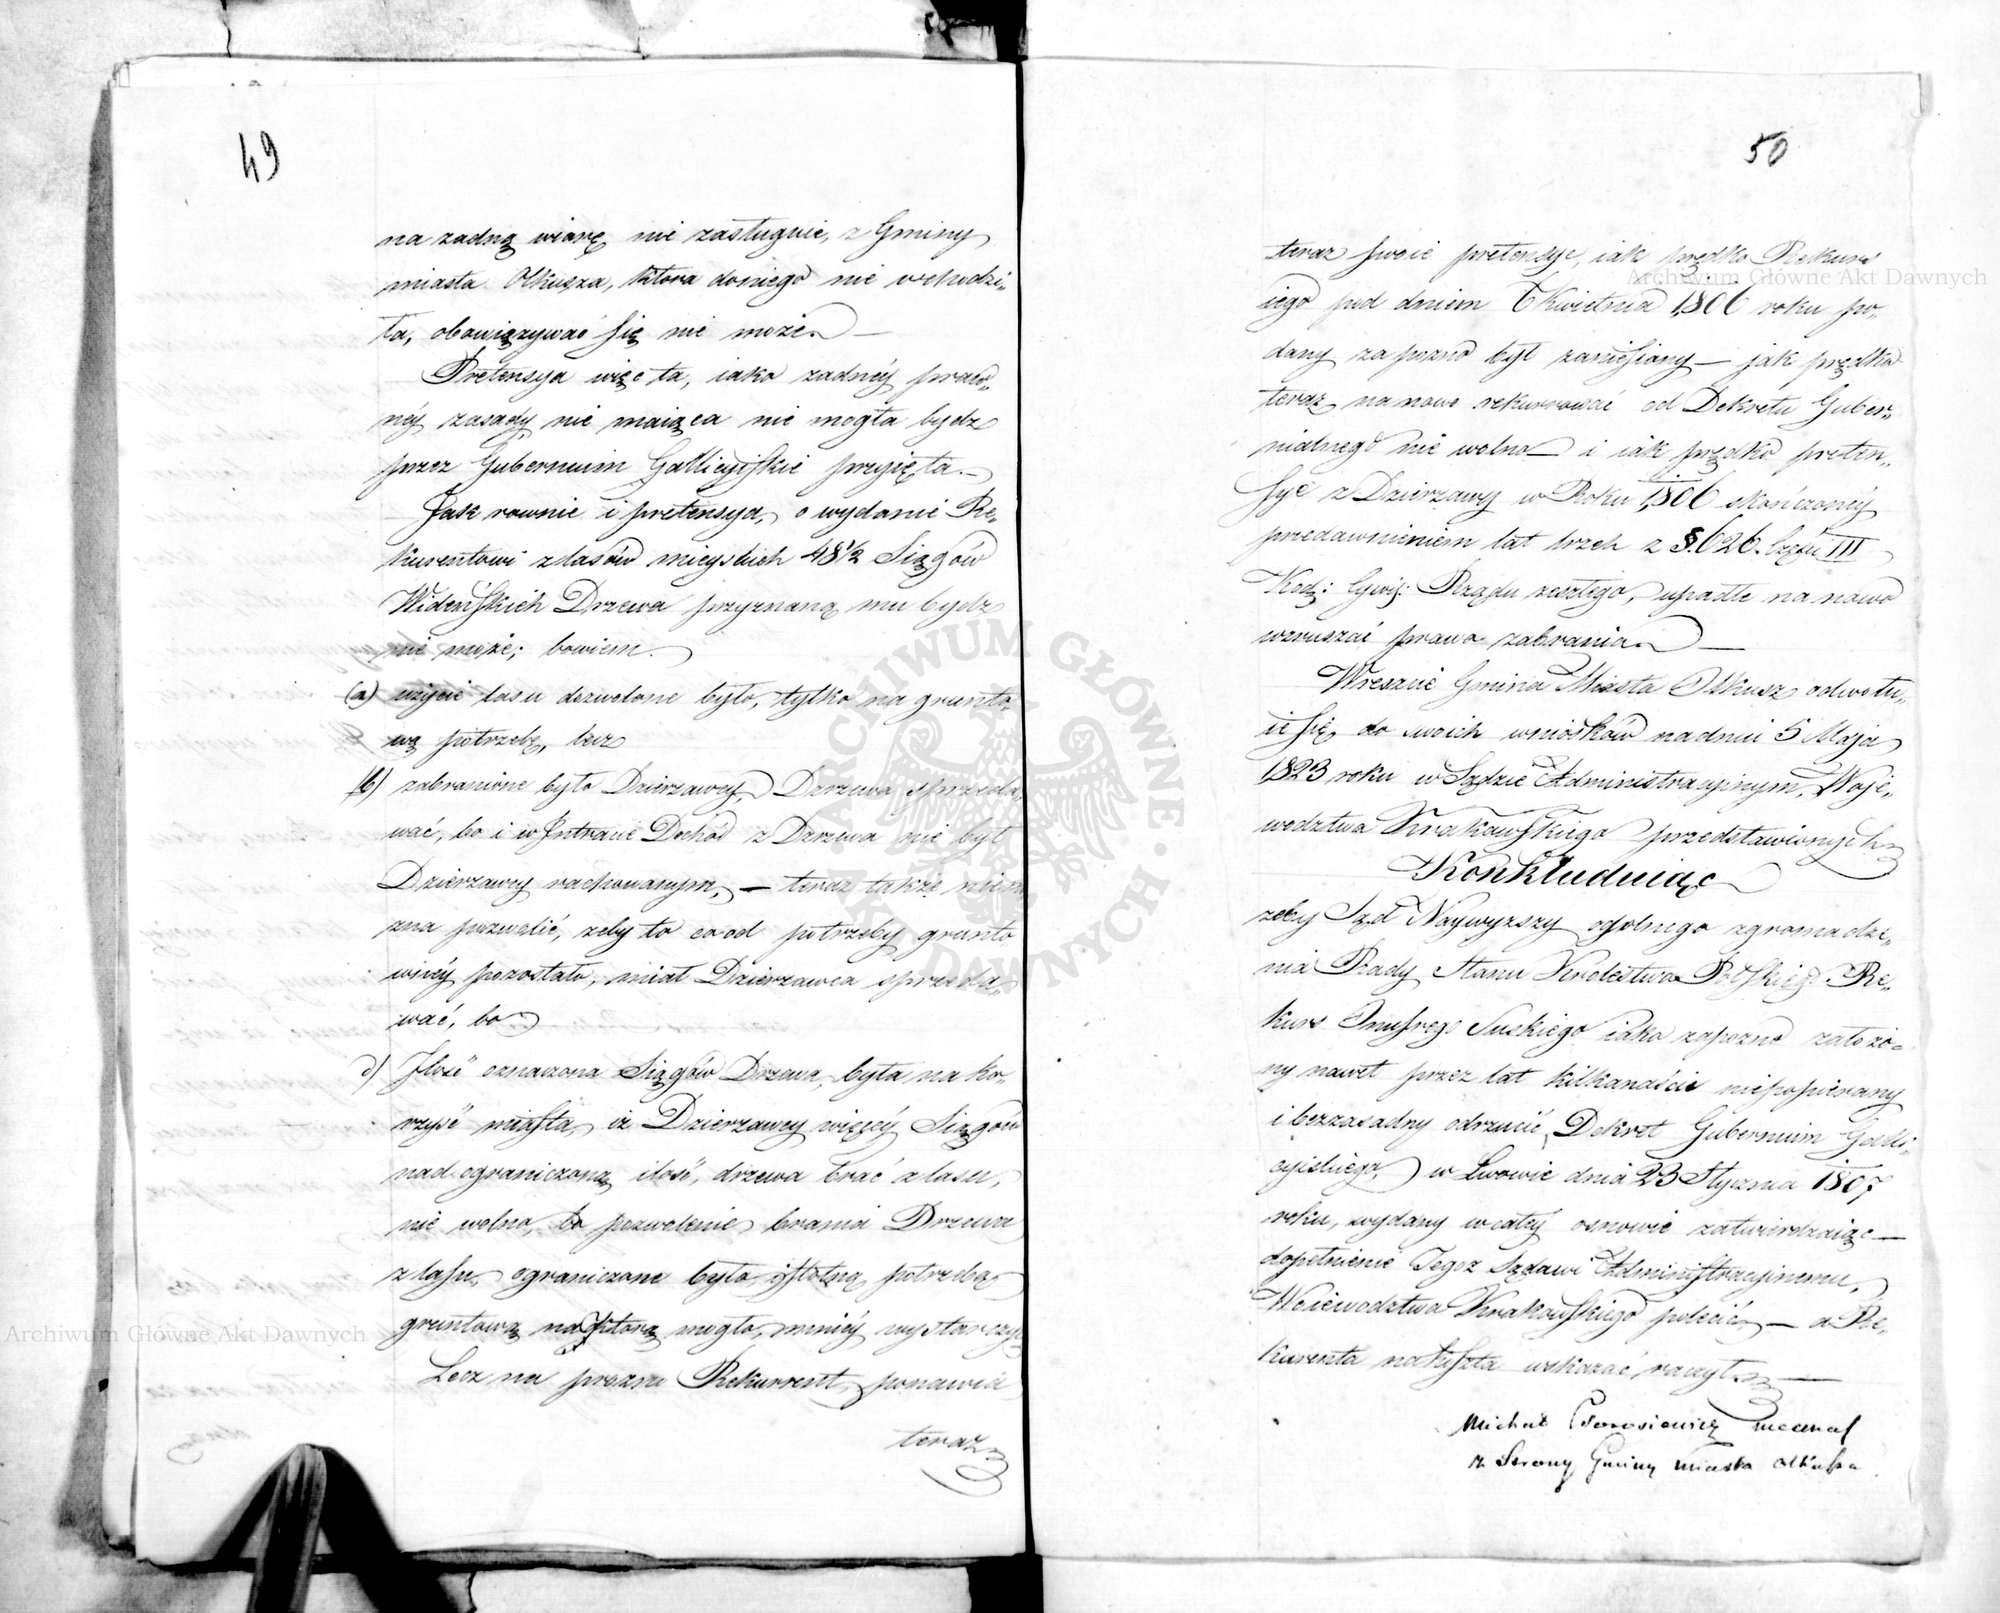 49
na zadną wiarę nie zasługuie, z Gminy
miasta Olkusza, ktora doniego nie wchodzi„
ła, obowięzywać się nie może. —
Pretensya więc ta, iako zadnéy praw„
néy zasady nie maiąca nie mogła bydz
przez Gubernium Gallicyiskie przyięta. —
Jak rownie i pretensya, o wydanie Re„
kurentowi zlasów mieyskich 48½ Siągów
Wideńskich Drzewa przyznaną mu bydz
nie może; bowiem.
(a) użycie lasu dozwolone było, tylko na grunto„
wą potrzebę, lecz
(b) zabronione było Dzierzawcy, Drzewa sprzeda„
wać, bo i w Intracie Dochód z Drzewa nie był
Dzierzawcy rachowanym, — teraz także
zna pozwolić, zeby to co od potrzeby grunto
wiéy pozostało, miał Dzierzawca sprzeda„
wać, bo
c) Ilość oznaczona Siągów Drzewa, była na ko„
rzyść miasta, iż Dzierzawcy więcéy Siągów
nad ograniczoną ilość, drzewa brać z lasu,
nie wolno, bo pozwolenie brania Drzewa
z lasu, ograniczone było istotną potrzebą
gruntową na którą mogło, mniéy wystarczyć
Lecz na prozno Rekurrent, ponawia
teraz
50
teraz swoie pretensye, iak prędko Rekurs
iego pod dniem 6 Kwietnia 1806 roku po„
dany zapozno był zaniesiony — jak prędko
teraz na nowo rekurrować od Dekretu Guber„
nialnego nie wolno — i iak prędko preten„
sye z Dzierzawy w Roku 1806 skończonéy
przedawnieniem lat trzech z §. 626. Częsci III
Kod: Cyw: Rządu zeszłego, upadłe na nowo
wzruszać prawo zabrania. —
Wreszcie Gmina Miasta Olkusz odwołu„
ie się do swoich wniosków na dniu 5 Maja
1823 roku w Sądzie Administracyjnym, Woje„
wodztwa Krakowskiego przedstawionych
Konkluduiąc
zeby Sąd Naywyzszy ogolnego zgromadze„
nia Rady Stanu Krolestwa Polskiego Re„
kurs Onufrego Suskiego iako zapozno założo„
ny nawet przez lat kilkanaście niepopierany
i bezzasadny odrzucić, Dekret Gubernium Galli„
cyiskiego, w Lwowie dnia 23 Stycznia 1807
roku, wydany w całey osnowie zatwierdzaiąc —
dopełnienie Tegoz Sądowi Administracyinemu,
Woiewodztwa Krakowskiego polecić, — a Re„
kurenta na koszta wskazać raczył. —
Michał mecenas
z Strony Gminy Miasta Olkusza
Archiwum Główne Akt Dawnych
Archiwum Główne Akt Dawnych
ARCHIWUM GŁÓWNE · AKT DAWNYCH ·